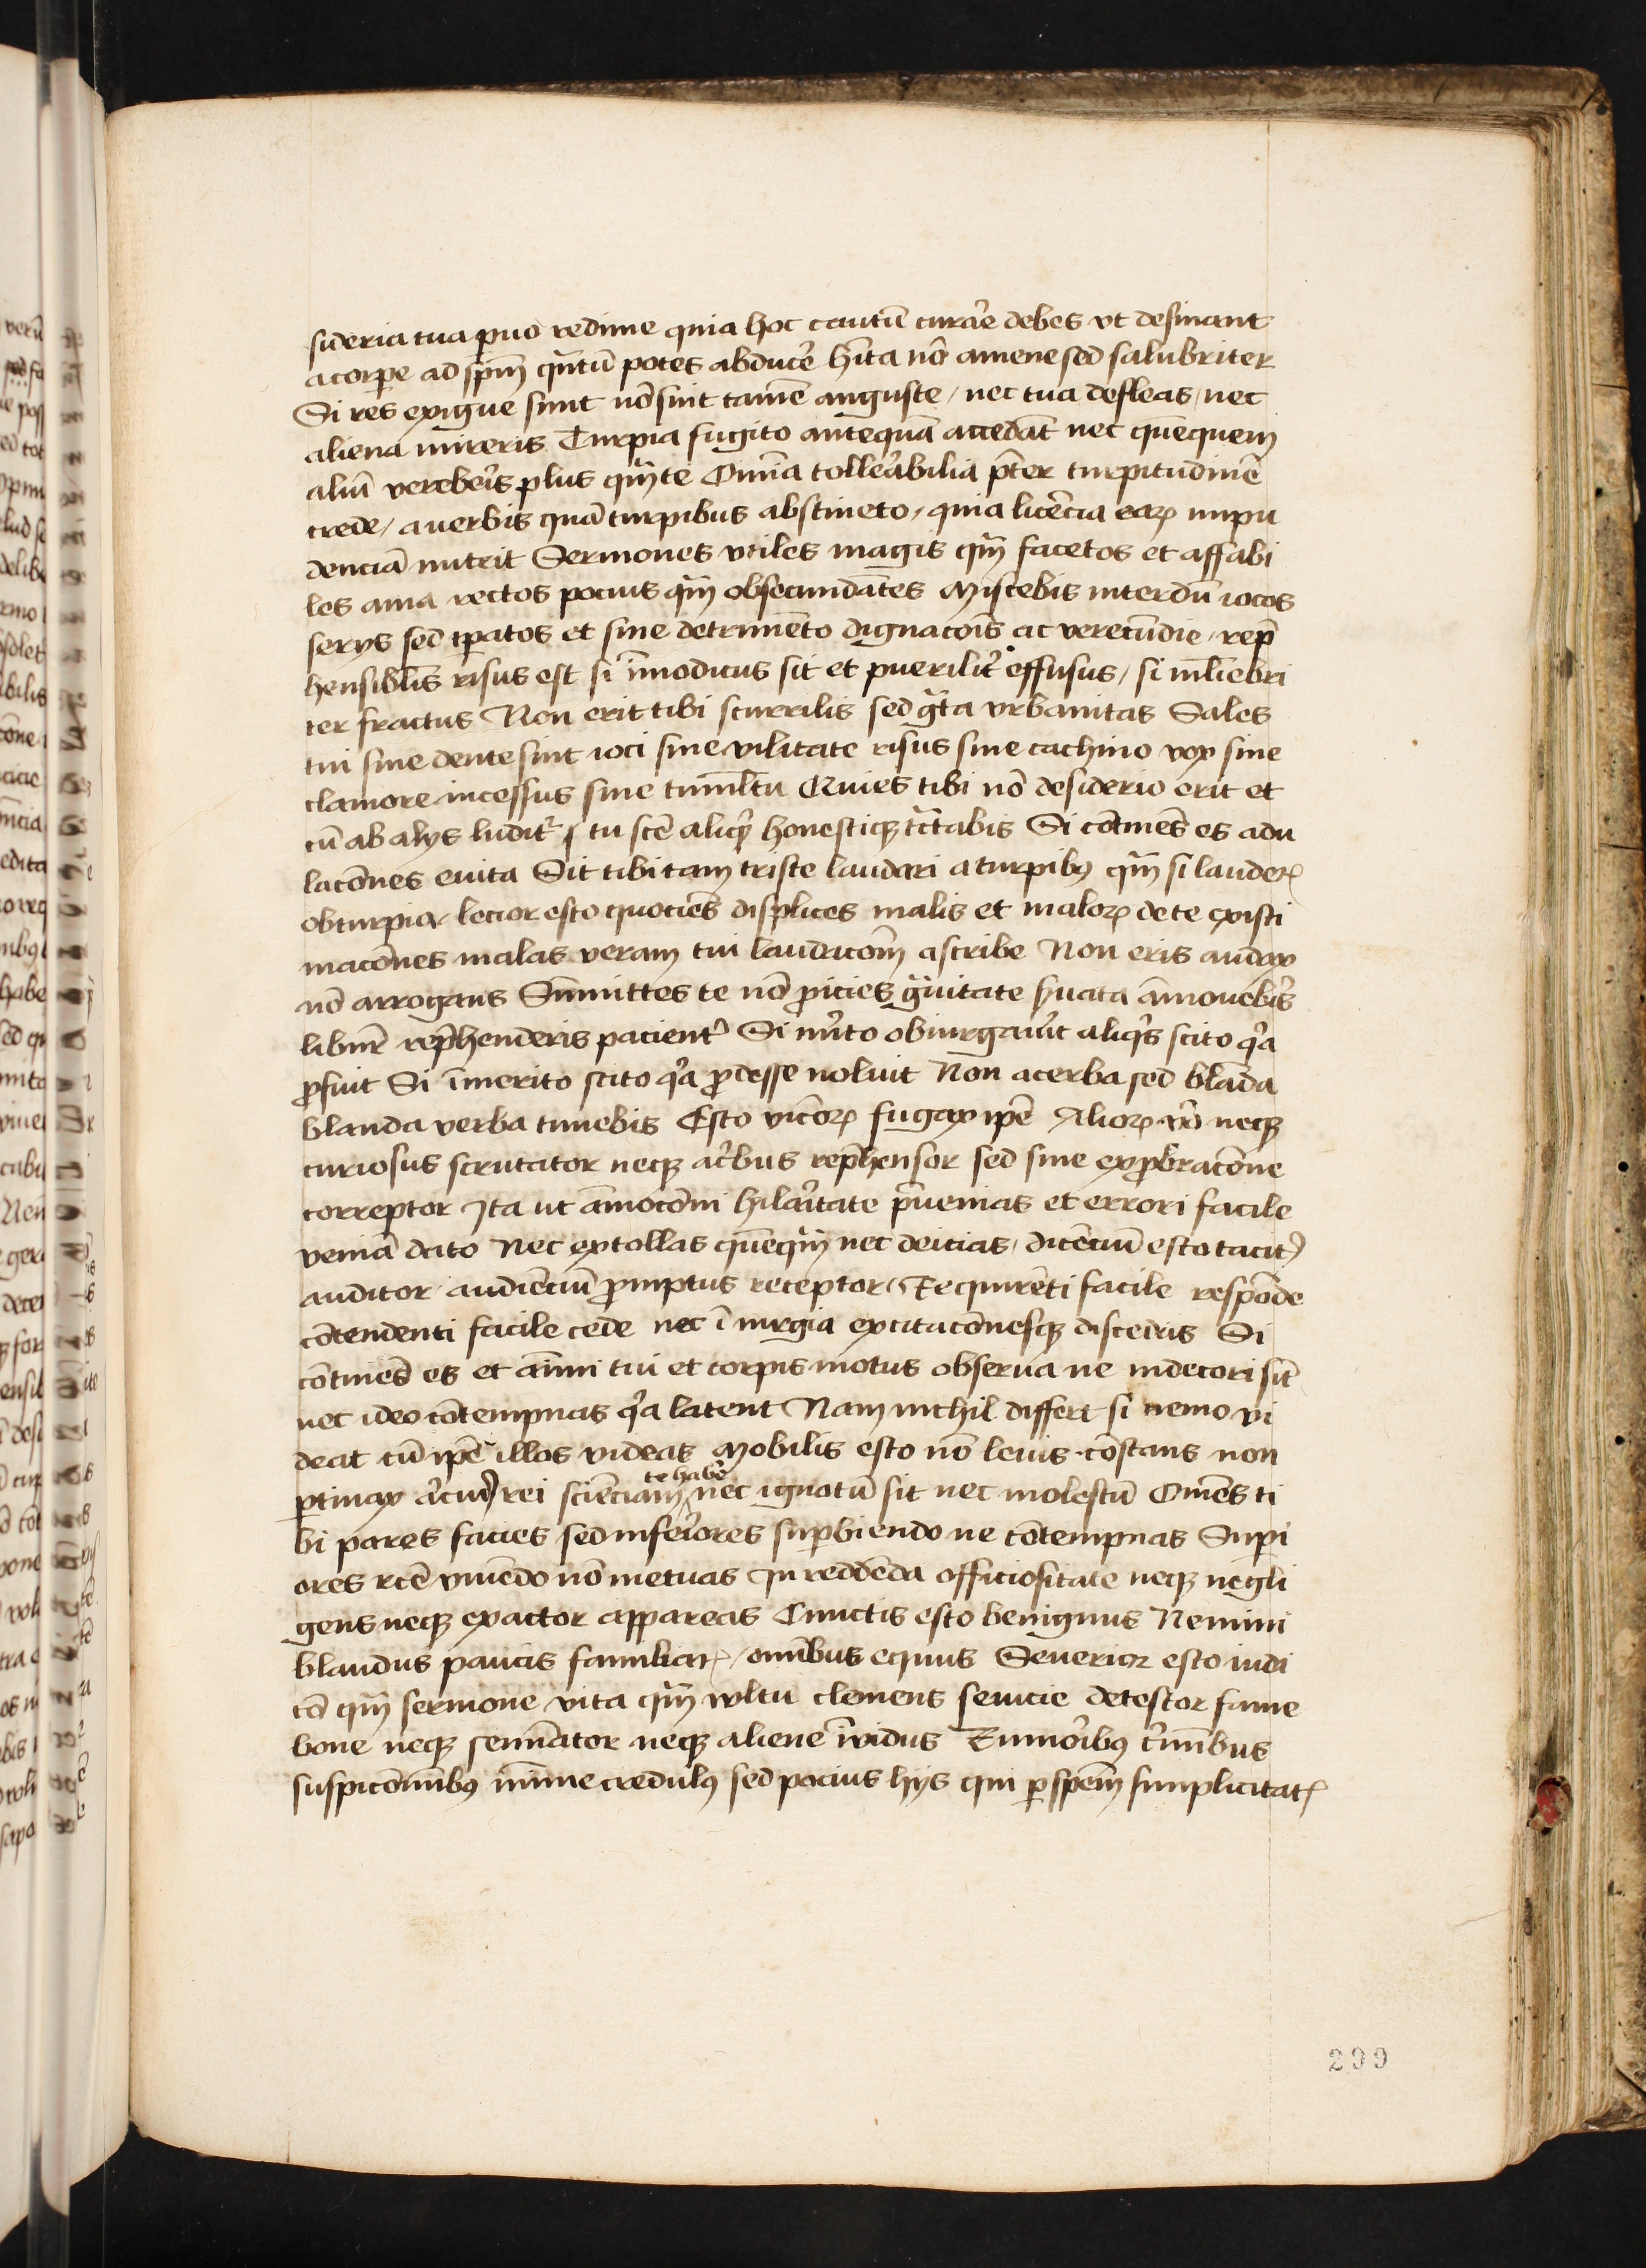 sideria tua puo redime quia hoc cautū curar̄e debes vt desinant
a corpe ad sp̄m qn̄tū potes abducē hīta nō amene sed salubriter
Si res exigue sunt nō sint tamē anguste / nec tua defleas / nec
aliena mireris Turpia fugito anteqūa accedāt nec quēquem
aliū verebeīs plus qm̄ te Om̄ia tolleābilia p̄ter turpitudinē
crede / a verbis quā turpibus abstineto / quia licēcia eaꝝ impu
denciā nutrit Sermones vtiles magis qm̄ facetos et affabi
les ama rectos pocius qm̄ obsecundātes Miscebis interdū iocos
serys sed tꝑatos et sine detrimēto dignacōis ac verecūdie / rep̄
hensiblīs risus est si īmodicus sit et puerilit̄ effusus / si ml̄iebri
ter fractus Non erit tibi scurrilis sed gr̄ta vrbanitas Sales
tui sine dente sint ioci sine vilitate risus sine cachino vox sine
clamore incessus sine tumltū Quies tibi nō desidério erit et
cū ab alys ludit̄ tu scē aliqͥ honestiqꝫ tr̄tabis Si cōtinēs es adu
lacōnes euita Sit tibi tam triste laudari a turpibꝰ qm̄ si lauderꝭ
ob turpia / lecior esto quociēs displices malis et maloꝝ de te existi
macōnes malas veram tui laudacōm̄ ascribe Non eris audax
nō arrogans Sūmittes te nō ꝓicies gr̄uitate s̄uata āmonebr̄is
libnr̄ rep̄henderis pacient̄ Si mr̄ito obiurgaūit aliqͥs scito qͥa
ꝓfuit Si īmerito scito qͥa ꝓdesse uoluit Non acerba sed blāda
blanda verba timebis Esto vicioꝝ fugax ip̄e Alioꝝ v̄o neqꝫ
curiosus scrutator neqꝫ ac̄bus rep̄hensor sed sine exꝓbracōne
correptor Ita ut āmocōni hilar̄itate p̄uenias et errori facile
veniā dato Nec extollas quēqm̄ nec deicias / dicēciū esto tacitꝰ
auditor audiēciū ꝓmptus receptor / Requirēti facile respōde
cōtendenti facile cede nec ī iurgia excitacōnesqꝫ disceds Si
cōtinēs es et aīmi tui et corpis motus obserua ne indecori sīt
nec ideo cōtempnas qͥa latent Nam nichil differt si nemo vi
deat cū ip̄e illos videas Mobilis esto nō leuis · cōstans non
ꝑtinax al̄icuiꝰ rei sciēciam te habē nec ignotū sit nec molestū Om̄es ti
bi pares facies sed inferīores suꝑbiendo ne cōtempnas Supi
ores rc̄e viuēdo nō metuas In reddēda officiositate neqꝫ negli
gens neqꝫ exactor appareas Cunctis esto benignus Nemini
blandus paucis familiarꝭ / om̄ibus equus Seuerior esto iudi
cō qm̄ sermone vita qm̄ vultu clemens seuicie detestor fame
bone neqꝫ semīator neqꝫ aliene īvidus Rumor̄ibꝰ cr̄mībus
suspicōnībꝰ mīme credulꝰ sed pocius hys qui ꝑ spēm simplicitatꝭ
299